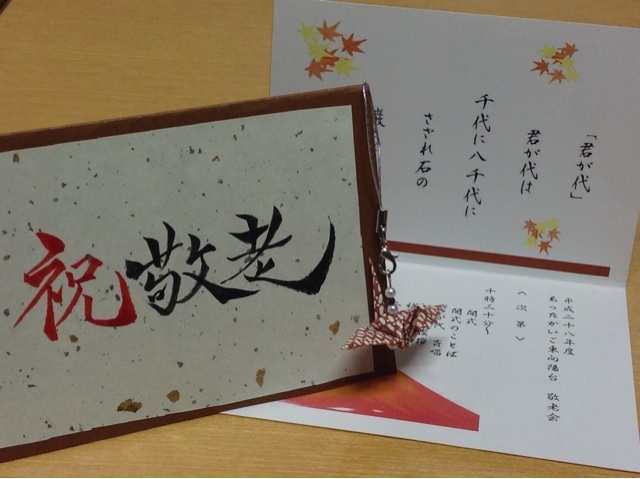 祝敬老
「君が代」
君が代は
千代に八千代に
さざれ石の
平成二十八年度
あったかいご来向陽台 敬老会
〈次第〉
十時三十分～
開式
開式のことば
斉唱